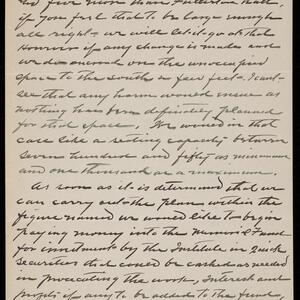 and five more than Fullerton Hall,
if you feel that to be large enough
all right & we will let it go at that
However if any change is made and
we do encroach on the unoccupied
space to the south a few feet. I can't
see that any harm would ensue as
nothing has been definitely planned
for that space. We would in that
case like a seating capacity between
seven hundred and fifty as minimum
and one thousand as a maximum.
As soon as it is determined that we
can carry out the plan within the
figure named we would like to begin
paying money into the Memorial Fund
for investment by the Institute in quick
securities that could be cashed as needed
in prosecuting the work, interest and
profits if any to be added to the fund,